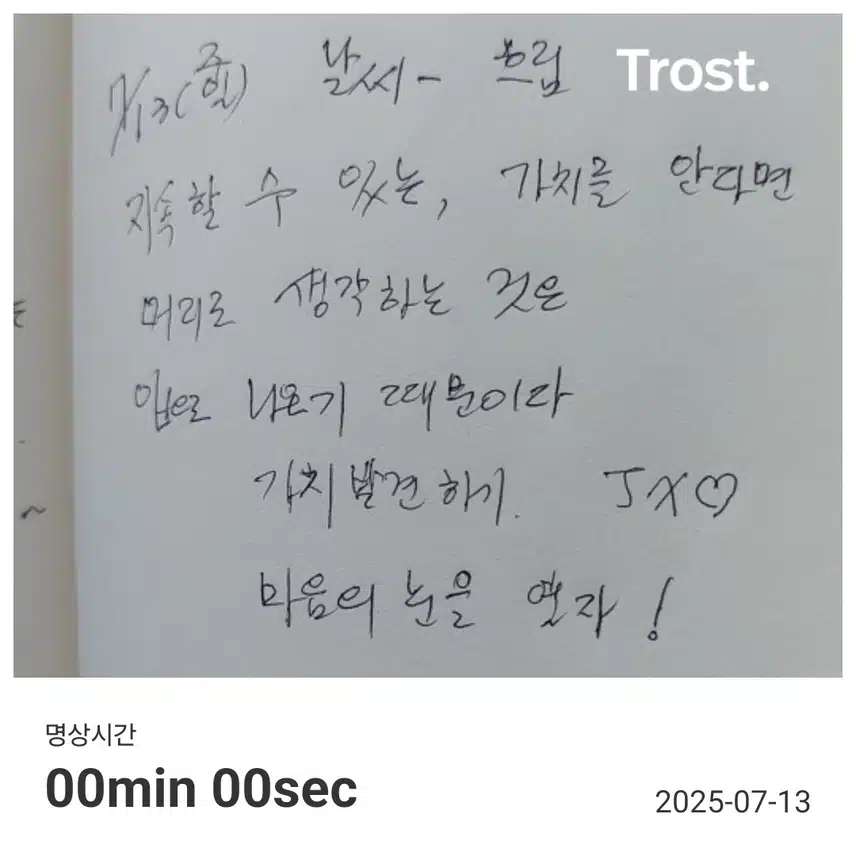 7/13(주일) 날씨 - 흐림
Trost.
지속할 수 있는, 가치를 안다면
머리로 생각하는 것은
입으로 나오기 때문이다
가치 발견하기. J X♡
마음의 눈을 열자!
명상시간
00min 00sec
2025-07-13